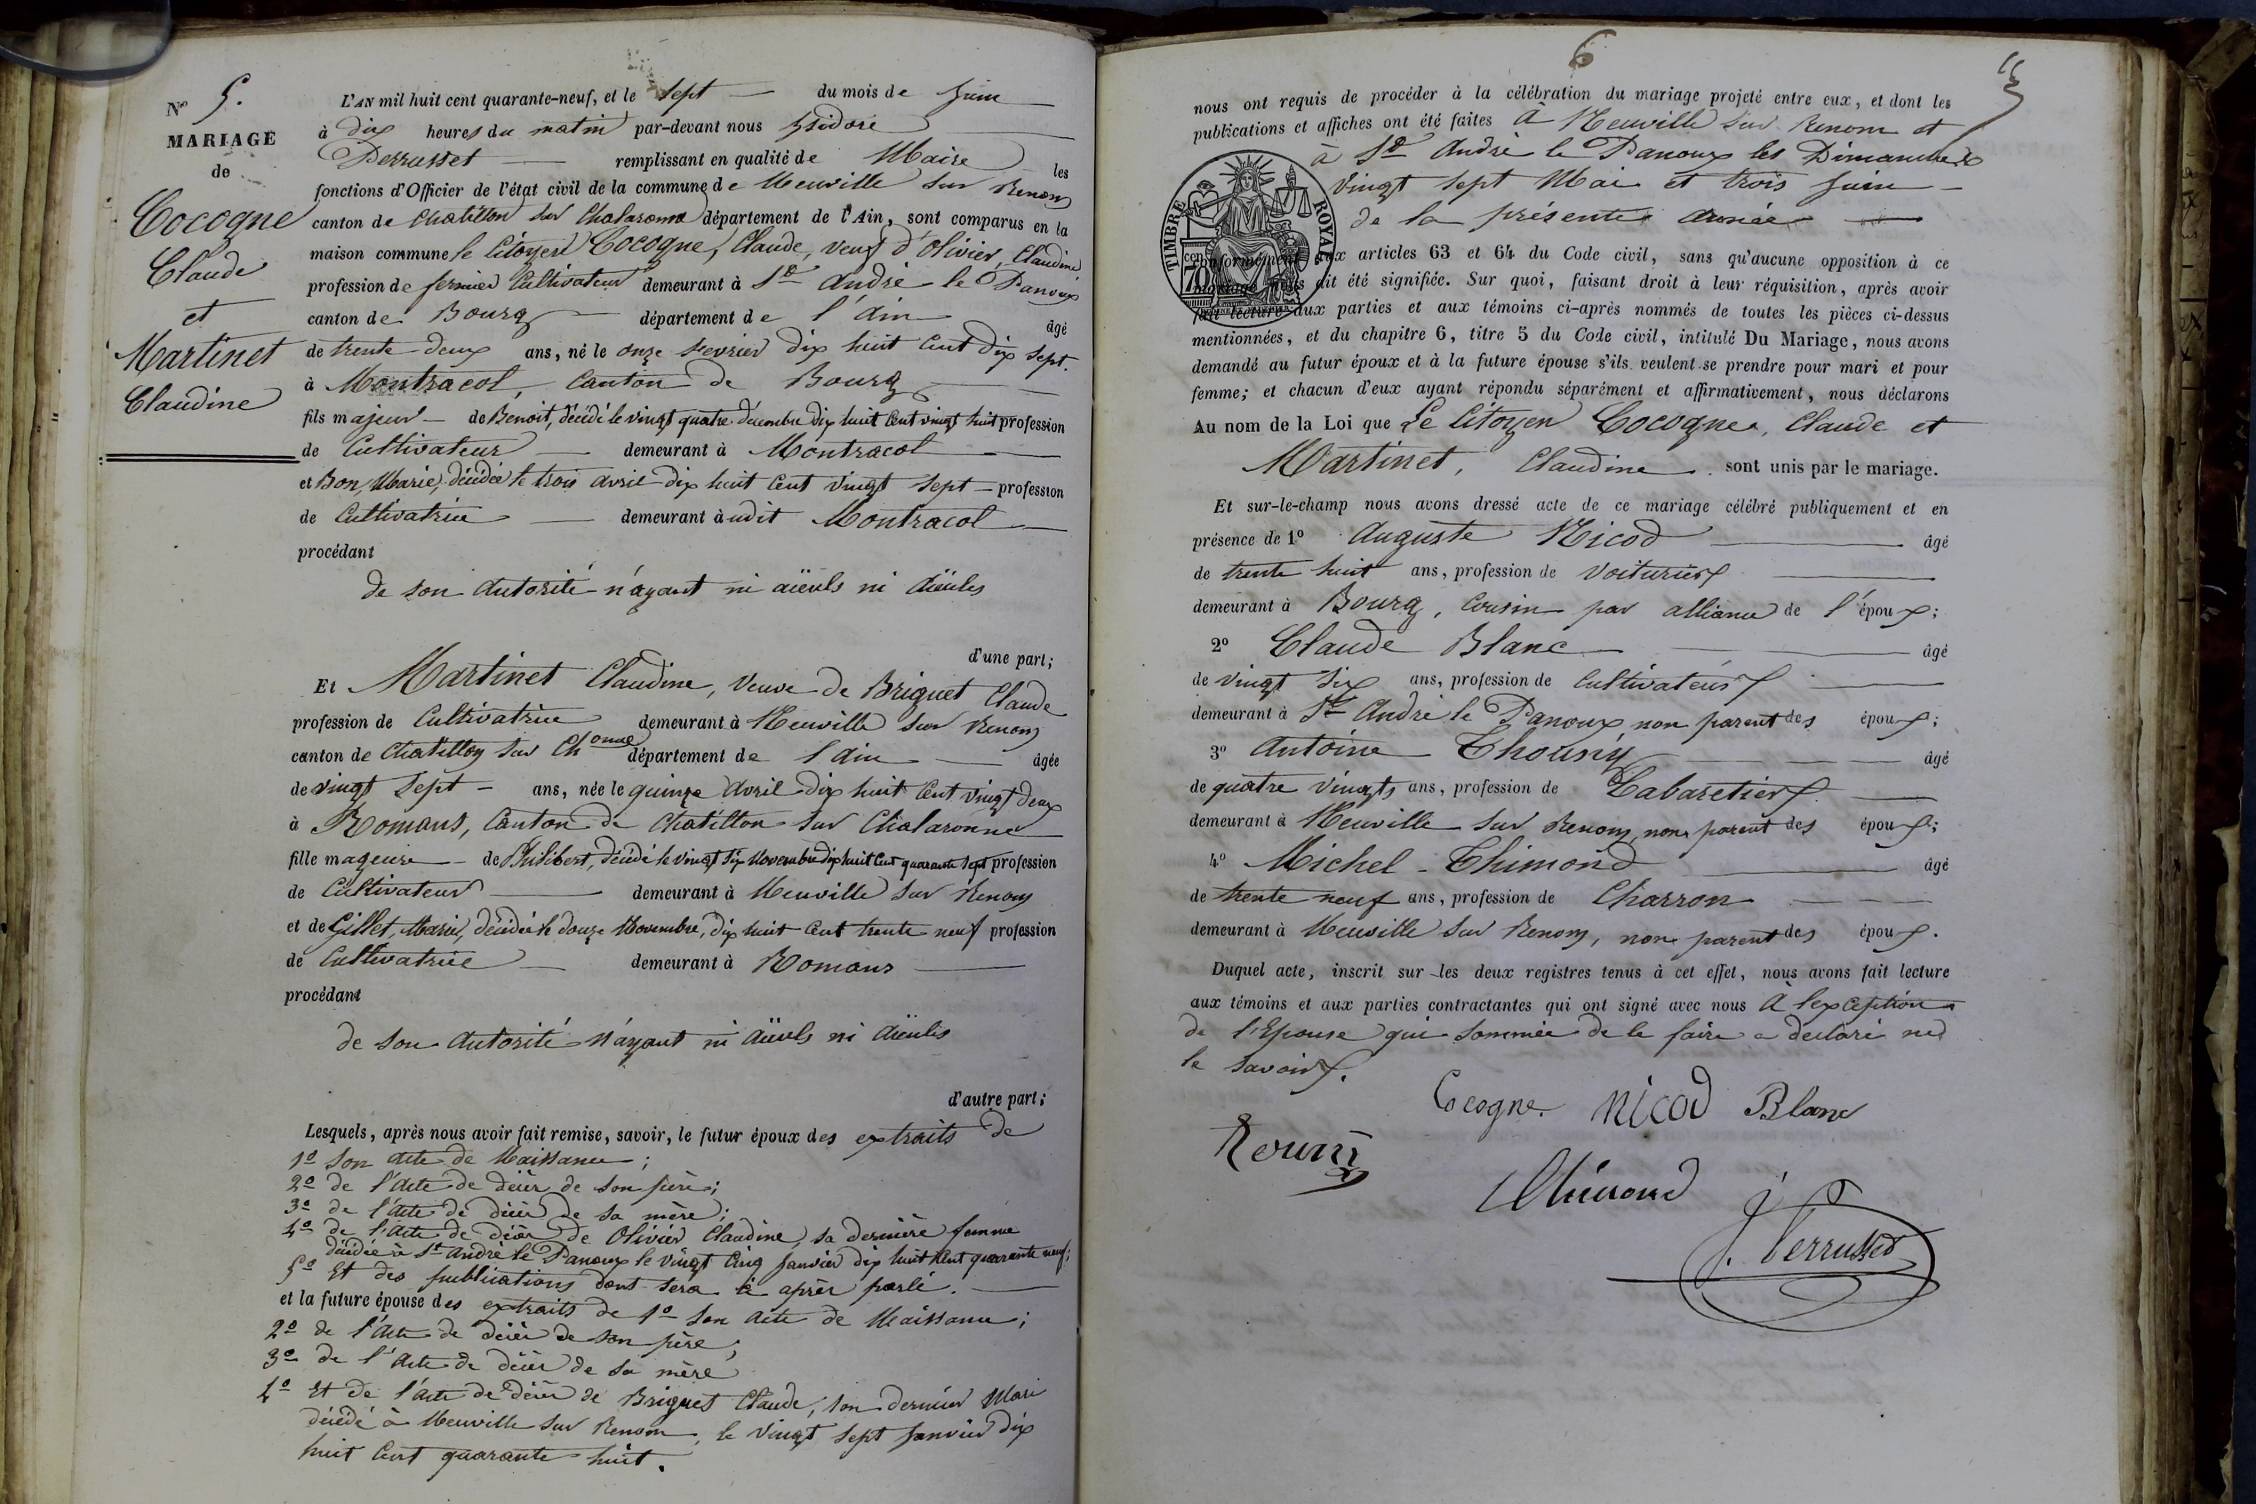 N° 5.
MARIAGE
de
Cocogne
Claude
et
Martinet
Claudine
L'AN mil huit cent quarante-neuf, et le sept du mois de juin
à dix heures du matin par-devant nous Isidore
Perrusset remplissant en qualité de Maire les
fonctions d'Officier de l'état civil de la commune de Neuville sur Renom
canton de Chatillon sur Chalaronne département de l'Ain, sont comparus en la
maison commune le Citoyen Cocogne, Claude, veuf d'Olivier, Claudine
profession de fermier Cultivateur demeurant à St André le Panoux
canton de Bourg département de l'Ain âgé
de trente deux ans, né le onze fevrier dix huit Cent dix sept.
à Montracol, Canton de Bourg
fils majeur de Benoit, décédé le vingt quatre décembre dix huit Cent vingt huit profession
de Cultivateur demeurant à Montracol
et Bon, Marie, décédée le trois avril dix huit Cent vingt sept profession
de Cultivatrice demeurant à udit Montracol
procédant
de son autorité n'ayant ni aïeuls ni aïeules
d'une part;
Et Martinet Claudine, Veuve de Briguet Claude
profession de Cultivatrice demeurant à Neuville sur Renom
canton de Chatillon sur Chonne département de l'Ain âgée
de vingt sept ans, née le quinze Avril dix huit Cent vingt deux
à Romans, Canton de Chatillon sur Chalaronne
fille mageure de Philibert, décédé le vingt six Novembre dix huit Cent quarante sept profession
de Cultivateur demeurant à Neuville sur Renom
et de Gillet, Marie, décédée le douze Novembre, dix huit Cent trente neuf profession
de Cultivatrice demeurant à Romans
procédant
de son autorité n'ayant ni aïeuls ni aïeules
d'autre part;
Lesquels, après nous avoir fait remise, savoir, le futur époux des extraits de
1° son acte de Naissance;
2° de l'acte de décès de son père;
3° de l'acte de décès de sa mère;
4° de l'acte de décès de Olivier Claudine, sa dernière femme
décédée à St André le Panoux le vingt Cinq Janvier dix huit Cent quarante neuf;
5° Et des publications dont sera ci après parlé.
et la future épouse des extraits de 1° son acte de Naissance;
2° de l'acte de décès de son père;
3° de l'acte de décès de sa mère
4° Et de l'acte de décès de Briguet Claude, son dernier Mari
décédé à Neuville sur Renom, le vingt sept Janvier dix
huit Cent quarante huit.
6
nous ont requis de procéder à la célébration du mariage projeté entre eux, et dont les
publications et affiches ont été faites à Neuville sur Renom et
à St André le Panoux les Dimanches
vingt sept Mai et trois juin
de la présente année
TIMBRE ROYAL
70 cen
conformément aux articles 63 et 64 du Code civil, sans qu'aucune opposition à ce
mariage nous ait été signifiée. Sur quoi, faisant droit à leur réquisition, après avoir
fait lecture aux parties et aux témoins ci-après nommés de toutes les pièces ci-dessus
mentionnées, et du chapitre 6, titre 5 du Code civil, intitulé Du Mariage, nous avons
demandé au futur époux et à la future épouse s'ils veulent se prendre pour mari et pour
femme; et chacun d'eux ayant répondu séparément et affirmativement, nous déclarons
Au nom de la Loi que Le Citoyen Cocogne, Claude et
Martinet, Claudine sont unis par le mariage.
Et sur-le-champ nous avons dressé acte de ce mariage célébré publiquement et en
présence de 1° Auguste Nicod âgé
de trente huit ans, profession de voiturier
demeurant à Bourg, Cousin par alliance de l'époux;
2° Claude Blanc âgé
de vingt six ans, profession de Cultivateur
demeurant à St André le Panoux non parent des époux;
3° Antoine Thouriy âgé
de quatre vingts ans, profession de Cabaretier
demeurant à Neuville sur Renom, non parent des époux;
4° Michel Thimond âgé
de trente neuf ans, profession de Charron
demeurant à Neuville sur Renom, non parent des époux.
Duquel acte, inscrit sur les deux registres tenus à cet effet, nous avons fait lecture
aux témoins et aux parties contractantes qui ont signé avec nous à l'exception
de l'Epouse qui sommée de le faire a declaré ne
le savoir.
Cocogne Nicod Blanc
Thimond
J. Perrusset